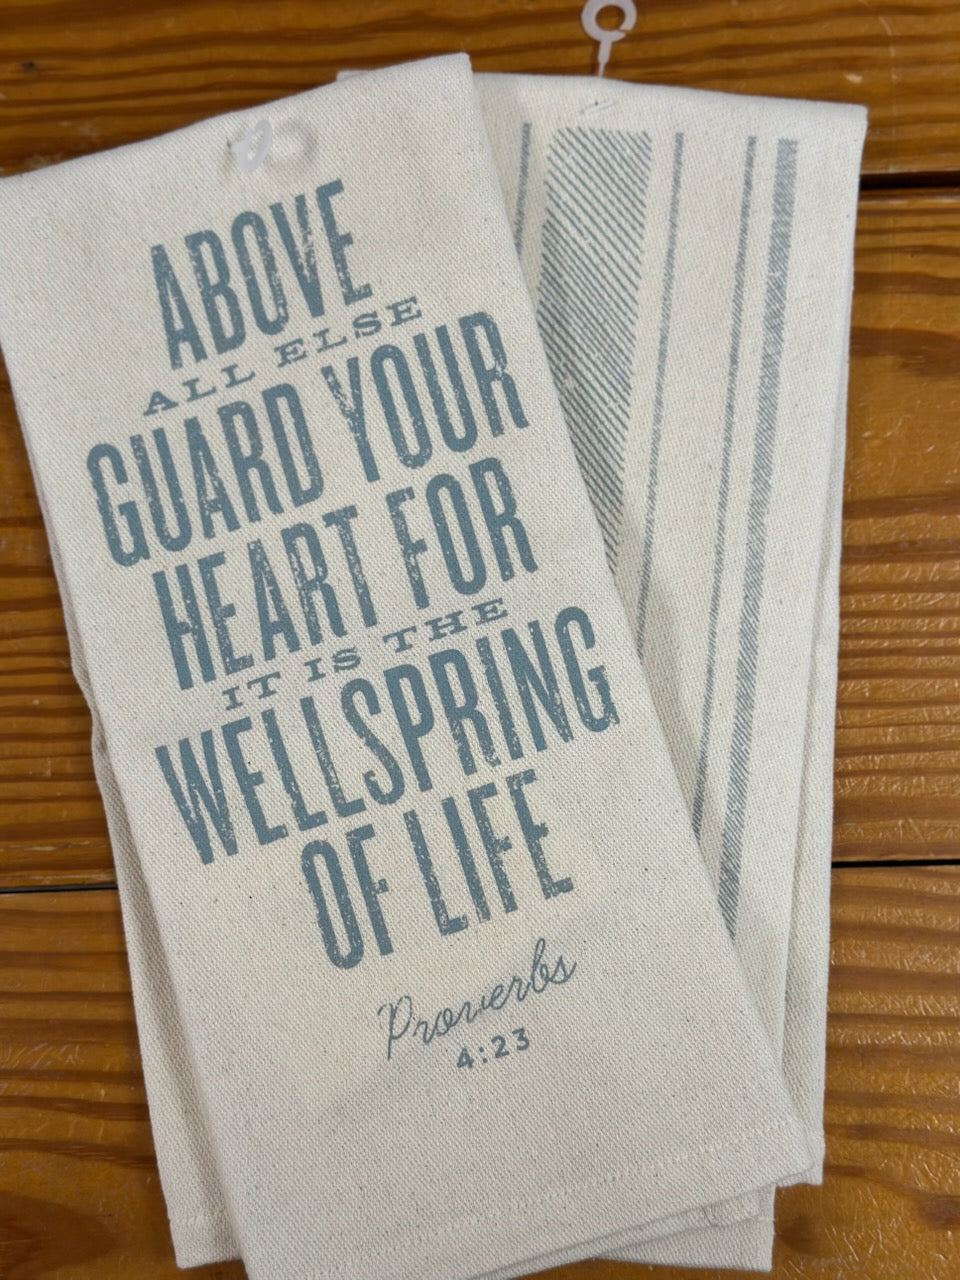 ABOVE
ALL ELSE
GUARD YOUR
HEART FOR
IT IS THE
WELLSPRING
OF LIFE
Proverbs
4:23